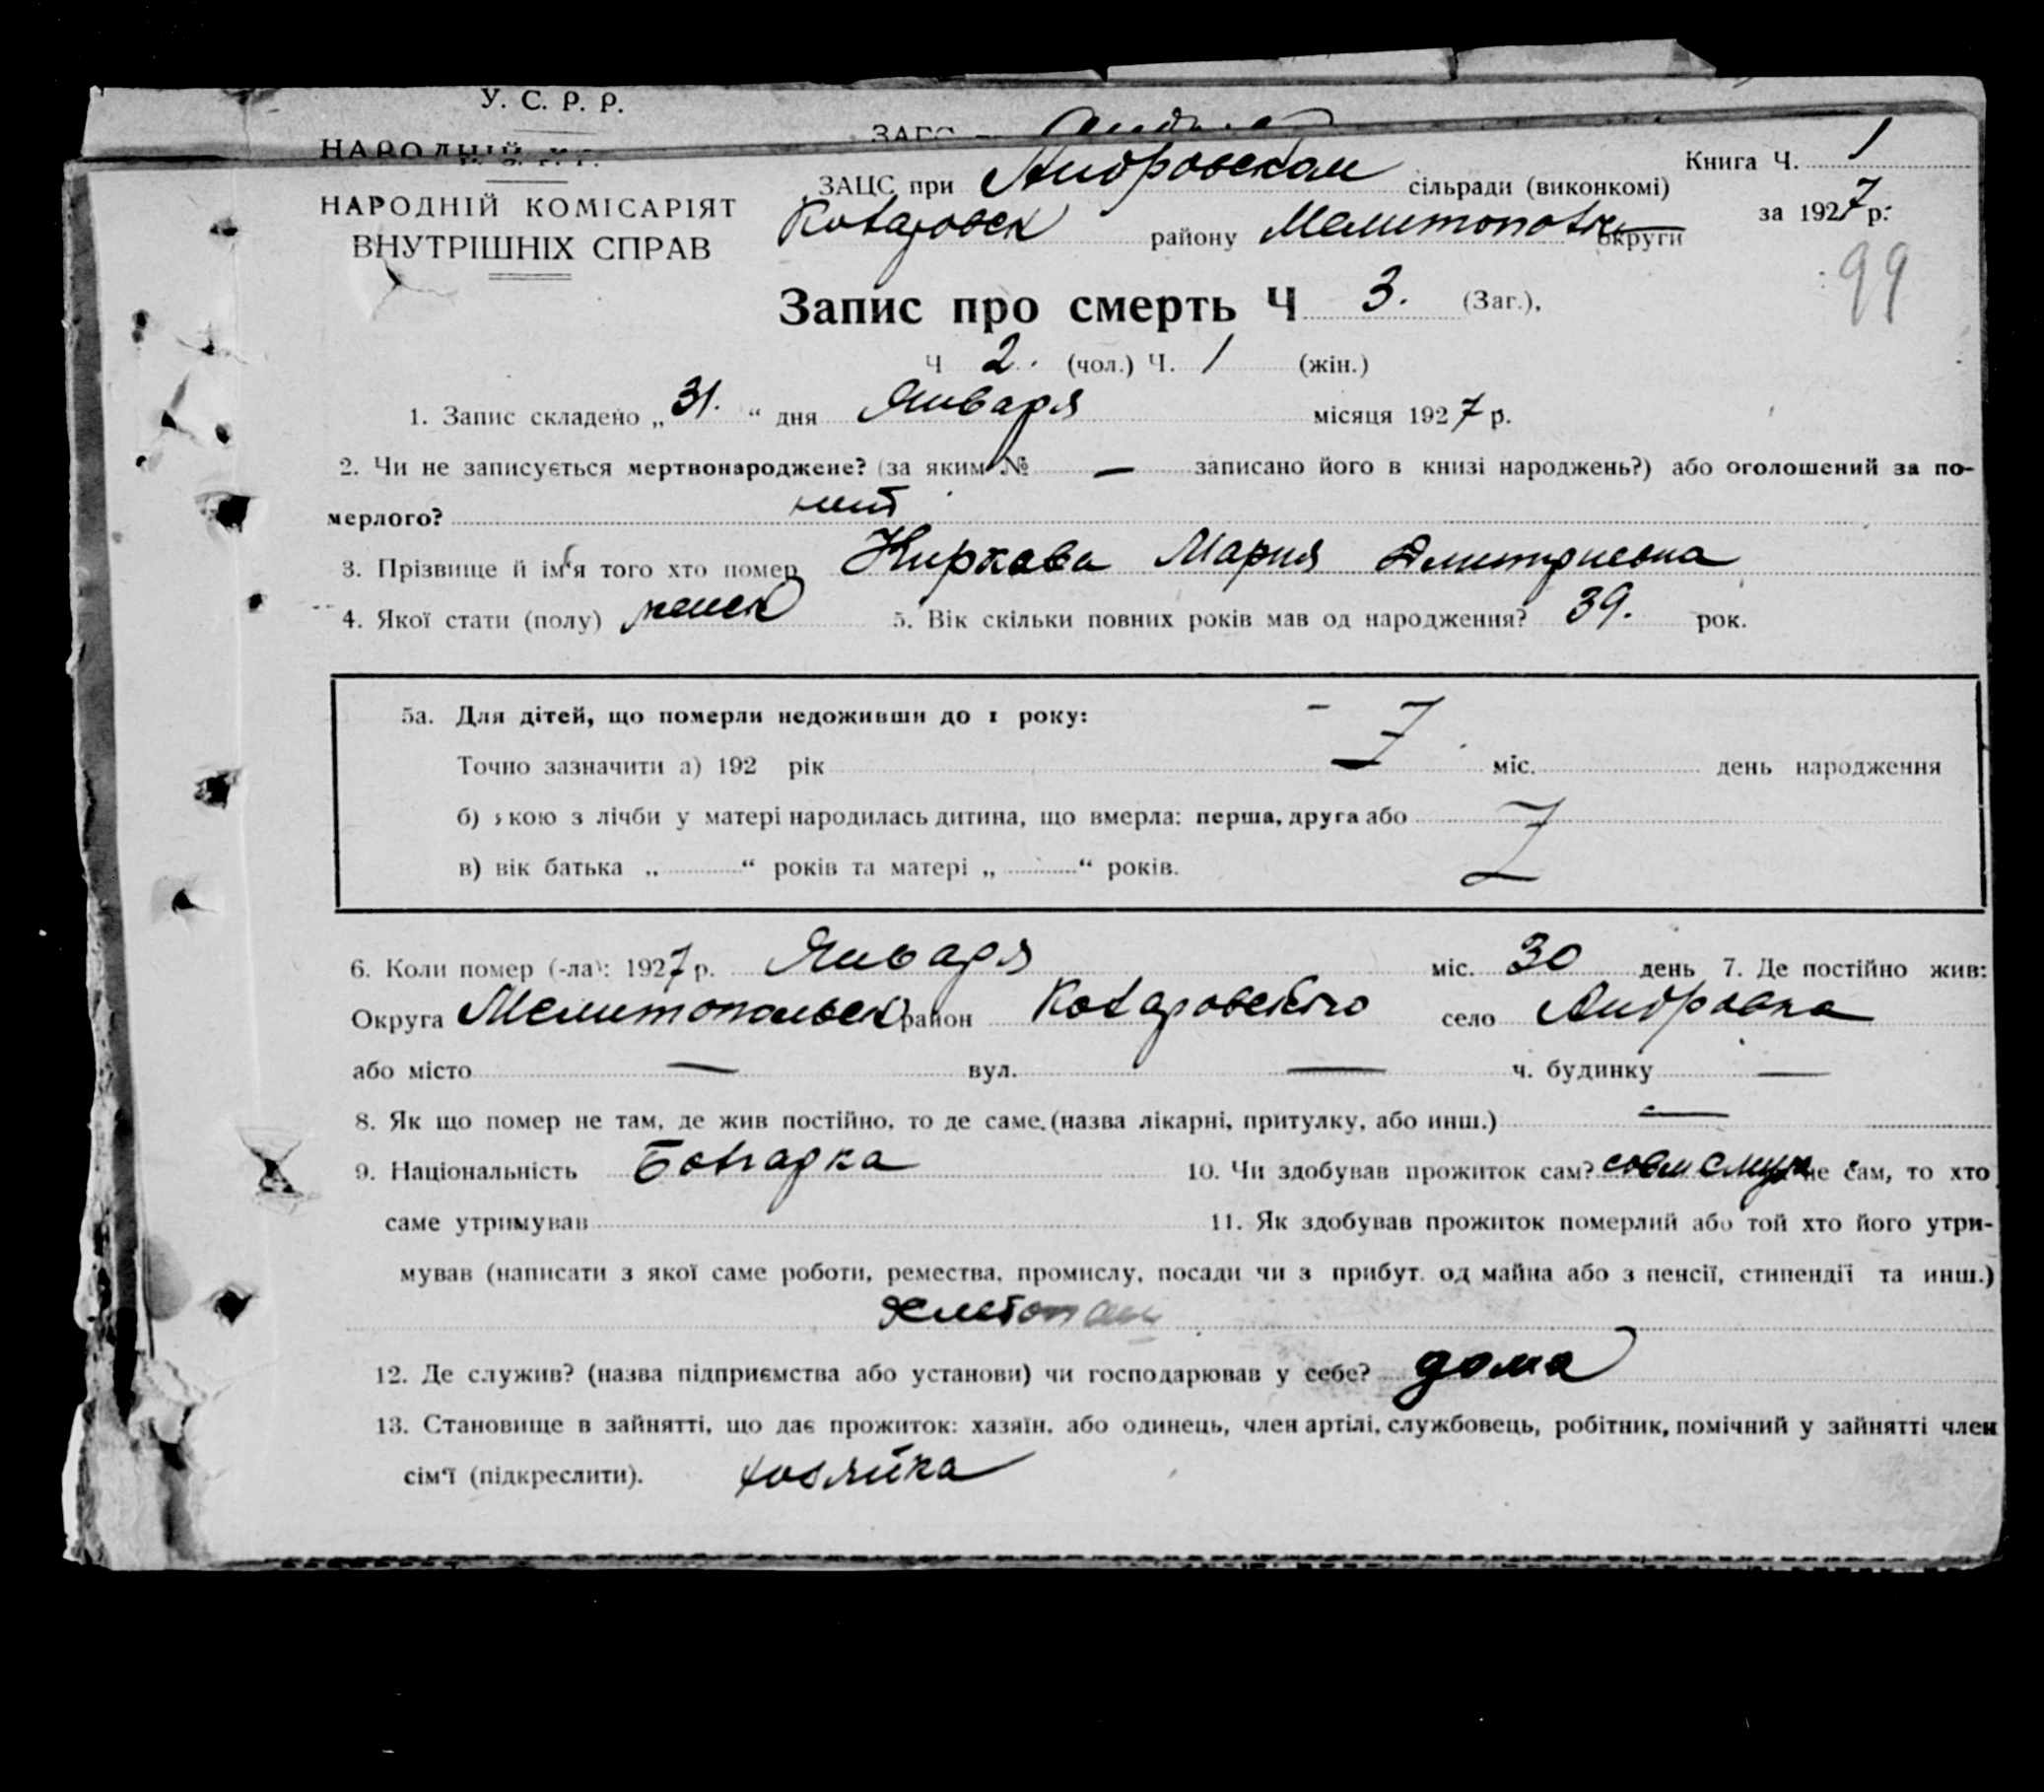 У. С. Р. Р.
НАРОДНІЙ
ЗАГС
НАРОДНІЙ КОМІСАРІЯТ
ВНУТРІШНІХ СПРАВ
ЗАЦС при Андровскам сільради (виконкомі)
Коларовск району округи
Книга Ч. 1
за 1927 р.
99
Запис про смерть Ч 3. (Заг.),
Ч 2. (чол.) Ч. 1 (жін.)
1. Запис складено „ 31. “ дня Января місяця 1927 р.
2. Чи не записується мертвонароджене? (за яким № — записано його в книзі народжень?) або оголошений за по-
мерлого? нет
3. Прізвище й ім'я того хто помер Киркова Мария Дмитриевна
4. Якої стати (полу) женск 5. Вік скільки повних років мав од народження? 39. рок.
5а. Для дітей, що померли недоживши до 1 року:
Точно зазначити а) 192 рік міс. день народження
б) кою з лічби у матері народилась дитина, що вмерла: перша, друга або
в) вік батька „ “ років та матері „ “ років.
6. Коли помер (-ла): 1927 р. Января міс. 30 день 7. Де постійно жив:
Округа Мелитопольск район Коларовского село Андровка
або місто — вул. — ч. будинку —
8. Як що помер не там, де жив постійно, то де саме. (назва лікарні, притулку, або инш.) —
9. Національність Болгарка 10. Чи здобував прожиток сам? не сам, то хто
саме утримував 11. Як здобував прожиток померлий або той хто його утри-
мував (написати з якої саме роботи, ремества, промислу, посади чи з прибут. од майна або з пенсії, стипендії та инш.)
12. Де служив? (назва підприємства або установи) чи господарював у себе? дома
13. Становище в зайнятті, що дає прожиток: хазяїн, або одинець, член артілі, службовець, робітник, помічний у зайнятті член
сім'ї (підкреслити). хозяйка